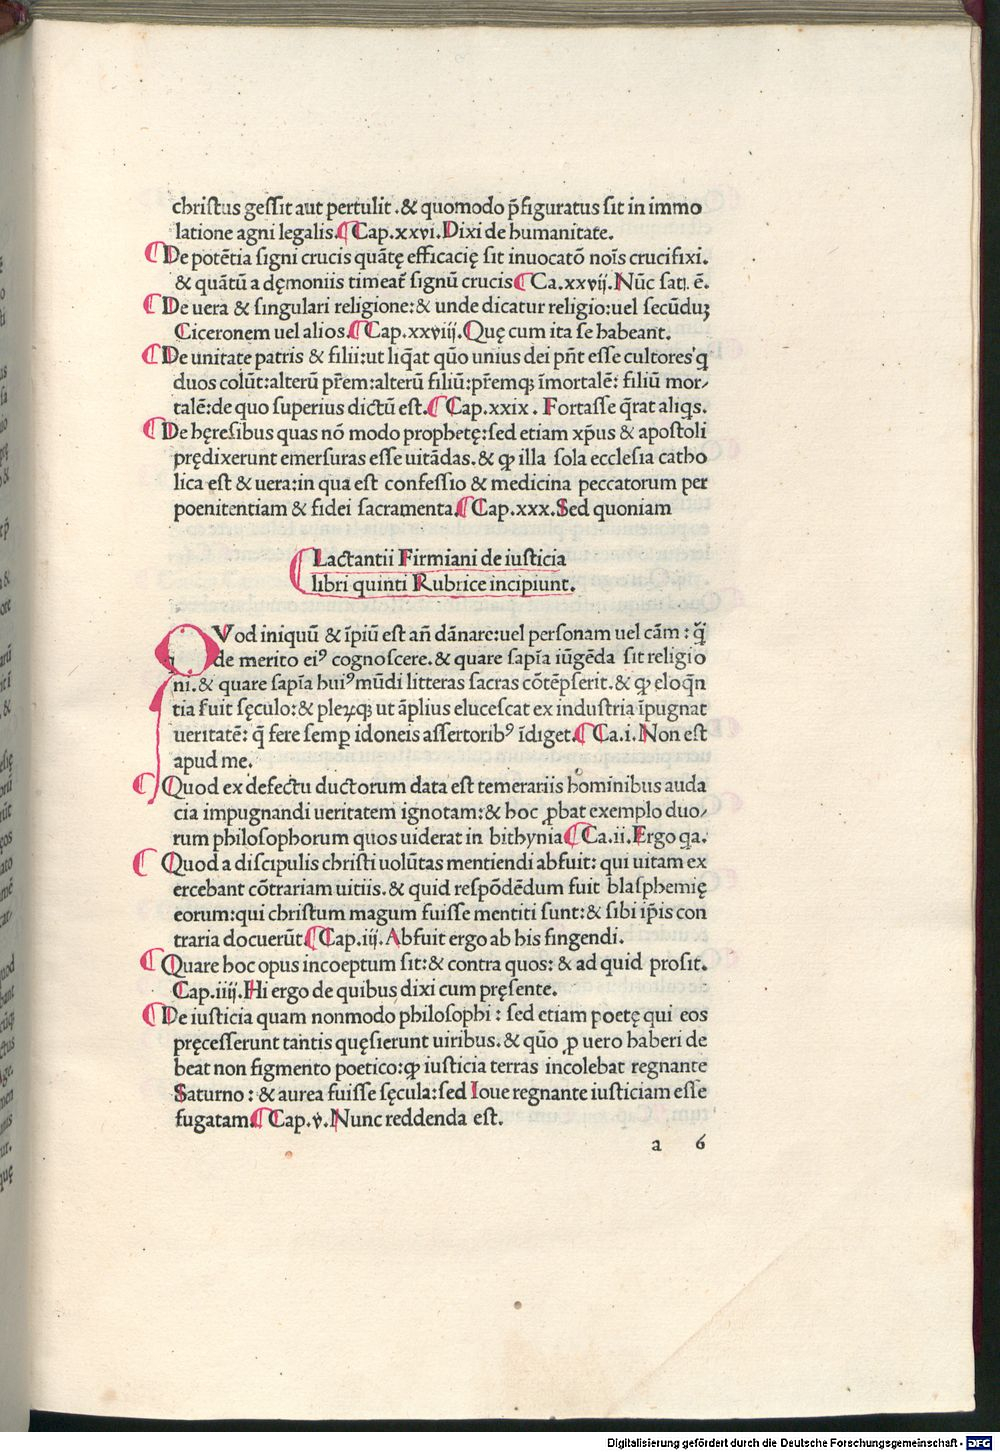 christus gessit aut pertulit .& quomodo p̄figuratus sit in immo
latione agni legalis. ¶ Cap.xxvi. Dixi de humanitate.
¶ De potētia signi crucis quātę efficacię sit inuocatō noīs crucifixi.
& quātū a dęmoniis timeat᷑ signū crucis ¶ Ca.xxvij. Nūc sati. ē.
¶ De uera & singulari religione:& unde dicatur religio:uel secūduꝫ
Ciceronem uel alios. ¶ Cap.xxviij. Quę cum ita se habeant.
¶ De unitate patris & filii:ut liq̄at quō unius dei pn̄t esse cultores'q
duos colūt:alterū pr̄em:alterū filiū:pr̄emqꝫ īmortalē: filiū mor/
talē:de quo superius dictū est. ¶ Cap.xxix. Fortasse q̄rat aliqs.
¶ De hęresibus quas nō modo prophetę:sed etiam xp̄us & apostoli
prędixerunt emersuras esse uitādas.& ꝙ illa sola ecclesia catho
lica est & uera:in qua est confessio & medicina peccatorum per
poenitentiam & fidei sacramenta. ¶ Cap.xxx. Sed quoniam
¶ Lactantii Firmiani de iusticia
libri quinti Rubrice incipiunt.
QVod iniquū & īpiū est an̄ dānare:uel personam uel cām : q̄
de merito eiꝰ cognoscere.& quare sapīa iūgēda sit religio
ni.& quare sapīa huiꝰ mūdi litteras sacras cōtēpserit.& ꝙ eloq̄n
tia fuit sęculo:& pleꝝqꝫ ut āplius elucescat ex industria īpugnat
ueritatē: q̄ fere semꝑ idoneis assertoribꝰ īdiget. ¶ Ca.i. Non est
apud me.
¶ Quod ex defectu ductorum data est temerariis hominibus auda
cia impugnandi ueritatem ignotam:& hoc ꝓbat exemplo duo/
rum philosophorum quos uiderat in bithynia ¶ Ca.ii. Ergo qa.
¶ Quod a discipulis christi uolūtas mentiendi abfuit: qui uitam ex
ercebant cōtrariam uitiis.& quid respōdēdum fuit blasphemię
eorum:qui christum magum fuisse mentiti sunt:& sibi ip̄is con
traria docuerūt. ¶ Cap.iij. Abfuit ergo ab his fingendi.
¶ Quare hoc opus incoeptum sit:& contra quos: & ad quid prosit.
Cap.iiij. Hi ergo de quibus dixi cum pręsente.
¶ De iusticia quam nonmodo philosophi : sed etiam poetę qui eos
pręcesserunt tantis quęsierunt uiribus.& quō ꝓ uero haberi de
beat non figmento poetico:ꝙ iusticia terras incolebat regnante
Saturno : & aurea fuisse sęcula:sed Ioue regnante iusticiam esse
fugatam. ¶ Cap.v. Nunc reddenda est.
a 6
Digitalisierung gefördert durch die Deutsche Forschungsgemeinschaft - DFG